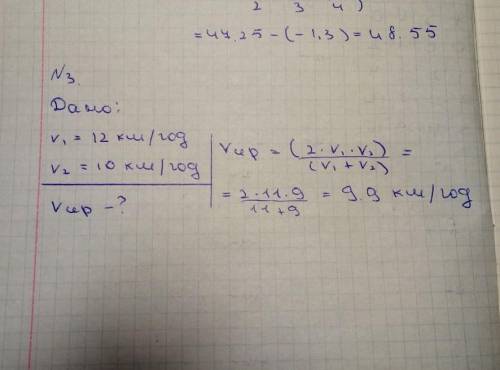 2 3 4 )
= 47.25 - (-1,3) = 48.55
N3.
Дано:
v₁ = 12 км/год
v₂ = 10 км/год
Vцр - ?
Vцр = (2·v₁·v₂)/(v₁+v₂) =
= 2·11·9/11+9 = 9.9 км/год